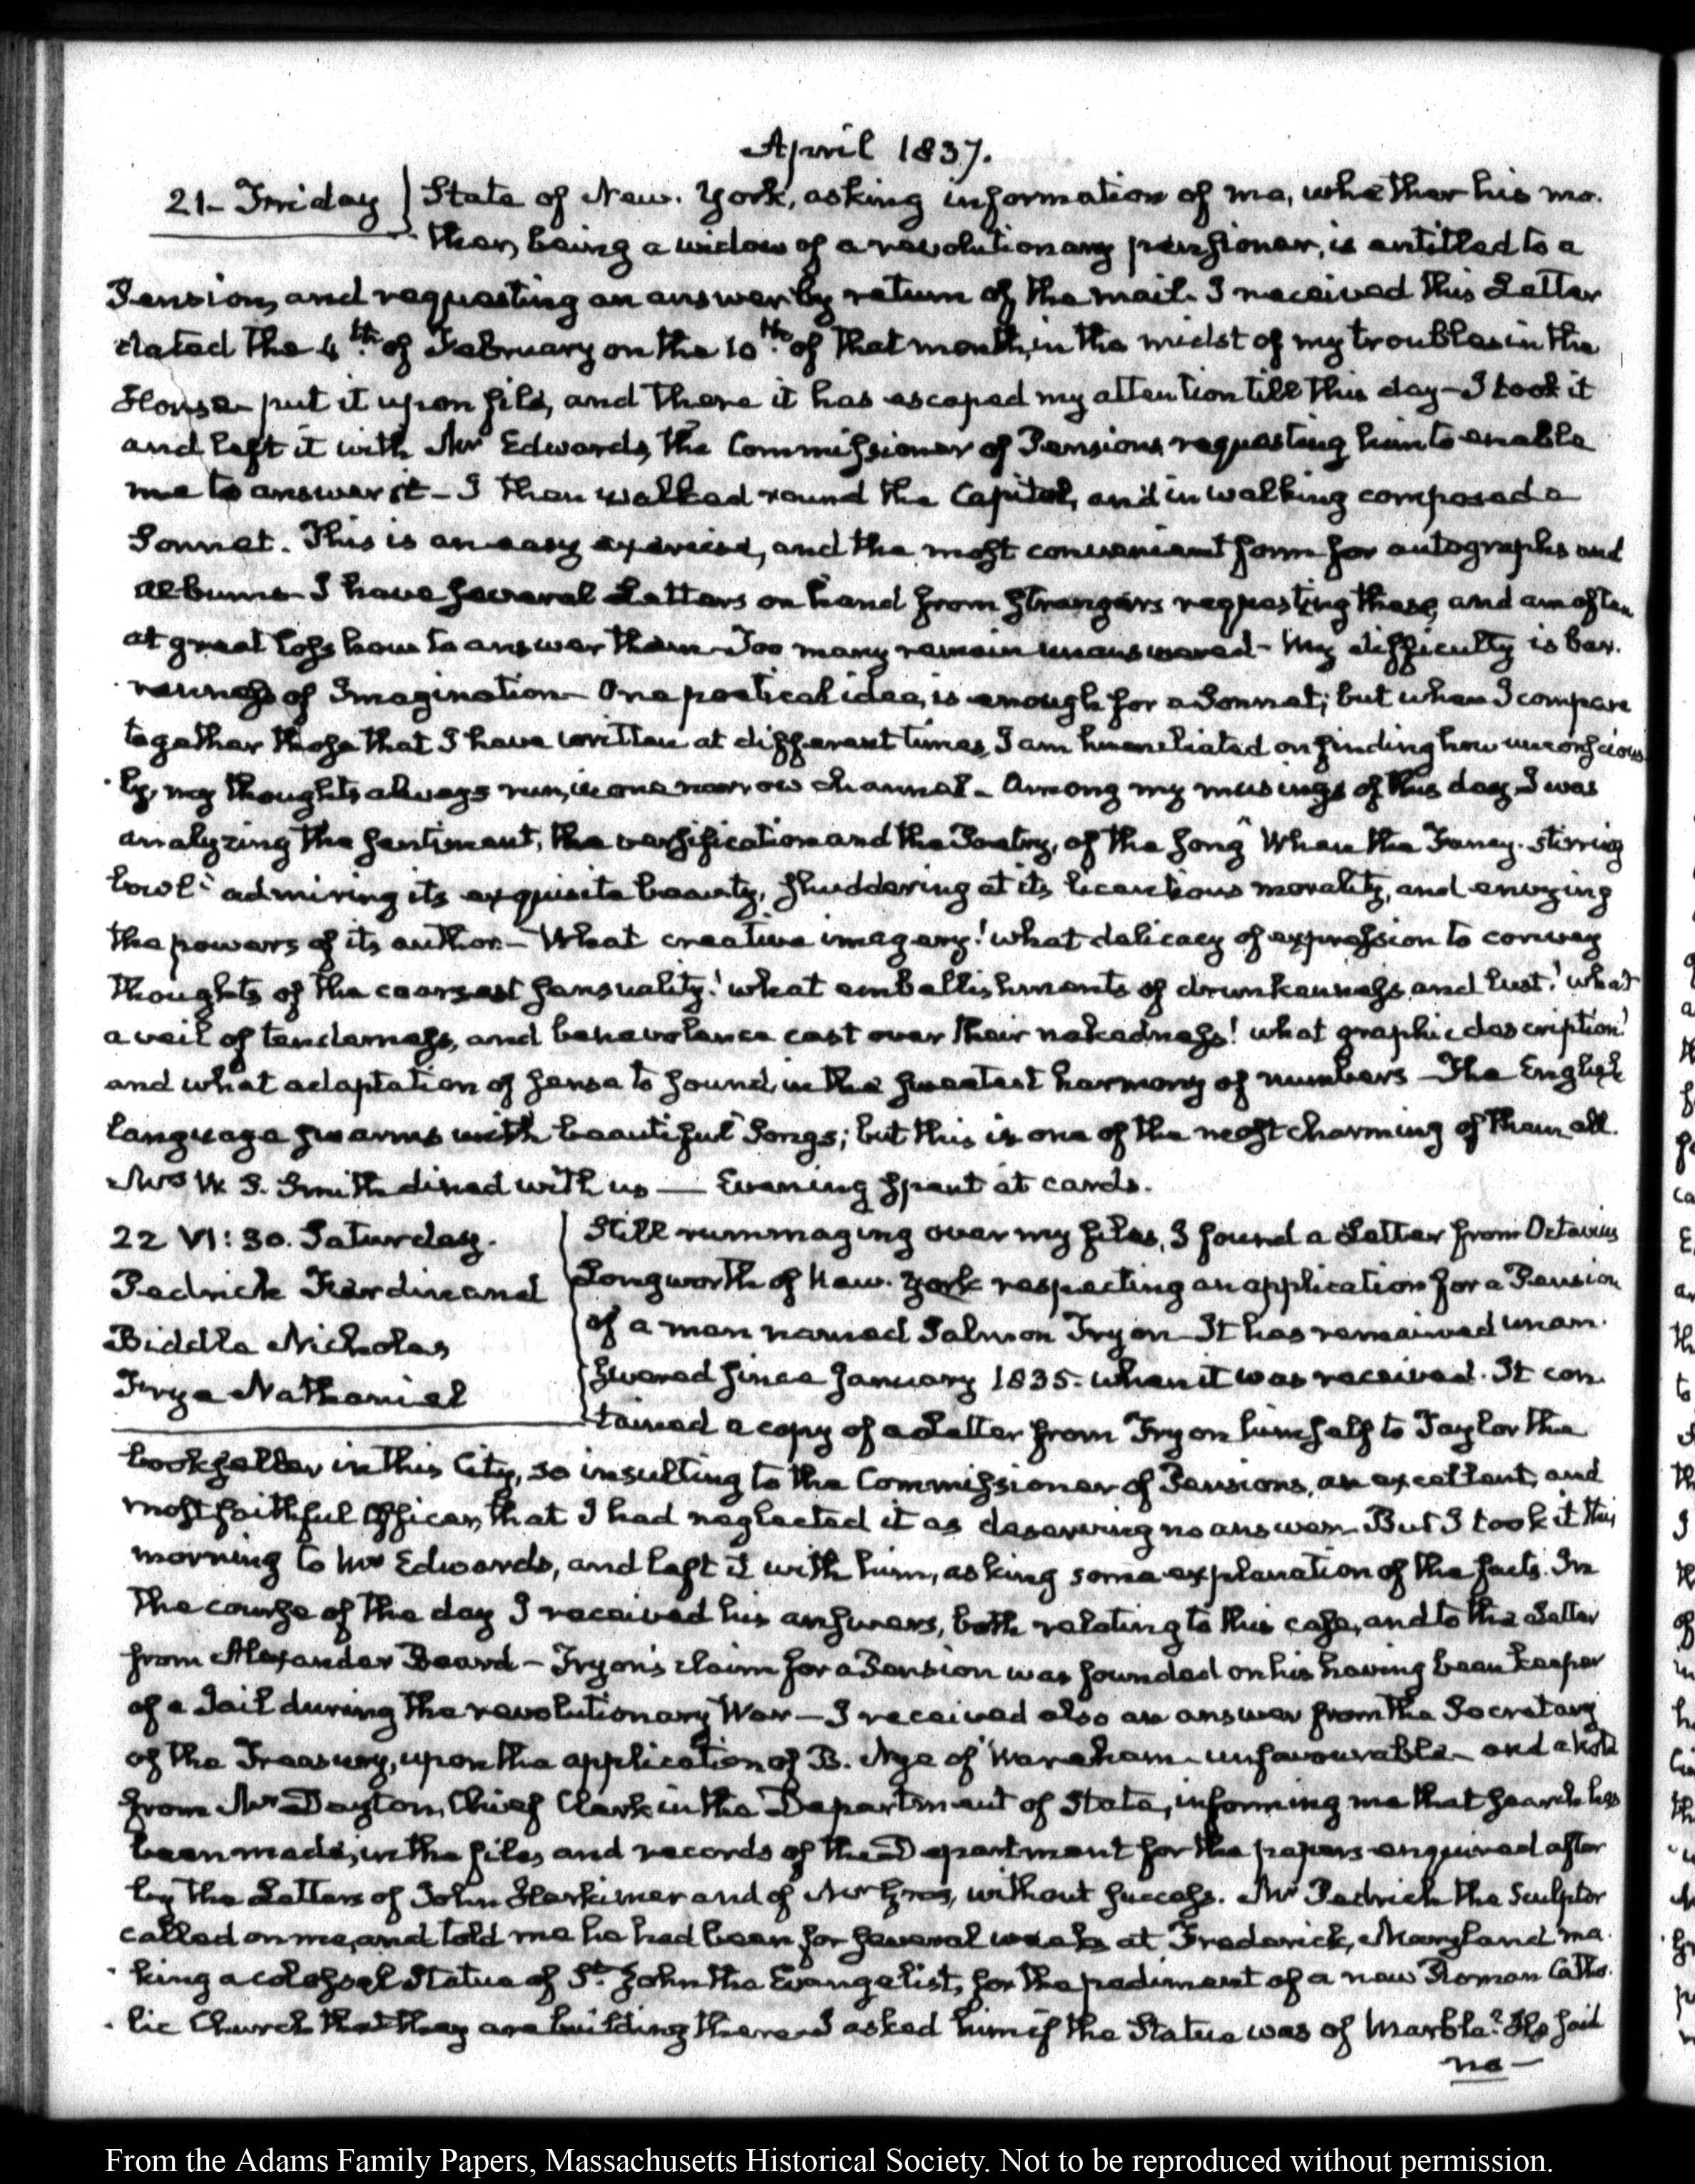 April 1837.
21- Friday } State of New-York, asking information of me, whether his mo-
ther, being a widow of a revolutionary pensioner, is entitled to a
Pension, and requesting an answer by return of the mail. I received this Letter
dated the 4th. of February on the 10th. of that month, in the midst of my troubles in the
House- put it upon file, and there it has escaped my attention till this day- I took it
and left it with Mr Edwards, the Commissioner of Pensions, requesting him to enable
me to answer it- I then walked round the Capitol, and in walking composed a
Sonnet. This is an easy exercise, and the most convenient form for autographs and
albums- I have several Letters on hand from strangers requesting these, and am often
at great loss how to answer them- Too many remain unanswered- My difficulty is bar-
renness of Imagination- One poetical idea, is enough for a Sonnet; but when I compare
together those that I have written at different times, I am humiliated on finding how unconscious-
ly, my thoughts always run, in one narrow channel- Among my musings of this day, I was
analyzing the sentiment, the versification and the Poetry, of the song "When the Fancy-stirring
bowl" admiring its exquisite beauty, shuddering at its licentious morality, and envying
the powers of its author- What creative imagery! what delicacy of expression to convey
thoughts of the coarsest sensuality! what embellishments of drunkenness, and lust! what
a veil of tenderness, and benevolence cast over their nakedness! what graphic description!
and what adaptation of sense to sound, in the sweetest harmony of numbers- The English
language swarms with beautiful Songs; but this is one of the most charming of them all.
Mrs W. S. Smith dined with us — Evening spent at cards.
22 VI:30. Saturday.
Pedrick Ferdinand
Biddle Nicholas
Frye Nathaniel
Still rummaging over my files, I found a Letter from Octavius
Longworth of New-York respecting an application for a Pension
of a man named Salmon Tryon- It has remained unan-
swered since January 1835. when it was received. It con-
tained a copy of a Letter from Tryon himself to Taylor the
bookseller in this City, so insulting to the Commissioner of Pensions, an excellent, and
most faithful Officer, that I had neglected it as deserving no answer- But I took it this
morning to Mr Edwards, and left it with him, asking some explanation of the facts. In
the course of the day I received his answers, both relating to this case, and to the Letter
from Alexander Beard- Tryon's claim for a Pension was founded on his having been keeper
of a Jail during the revolutionary War- I received also an answer from the Secretary
of the Treasury, upon the application of B. Nye of Wareham- unfavourable- and a Note
from Mr Dayton, Chief Clerk in the Department of State, informing me that search has
been made, in the files, and records of the Department for the papers enquired after
by the Letters of John Herkimer and of Mr, without success. Mr Pedrick the Sculptor
called on me, and told me he had been for several weeks at Frederick, Maryland ma-
king a colossal Statue of St. John the Evangelist, for the pediment of a new Roman Catho-
lic Church that they are building there- I asked him if the Statue was of Marble? He said
no-
From the Adams Family Papers, Massachusetts Historical Society. Not to be reproduced without permission.